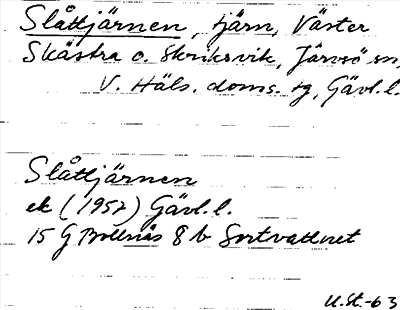 Slåttjärnen, tjärn, Väster
Skästra o. Skriksvik, Järvsö sn,
V. Häls. doms. tg, Gävl. l.
Slåttjärnen
ek (1952) Gävl. l.
15 G Bollnäs 8 b Sortvattnet
U. St. -63